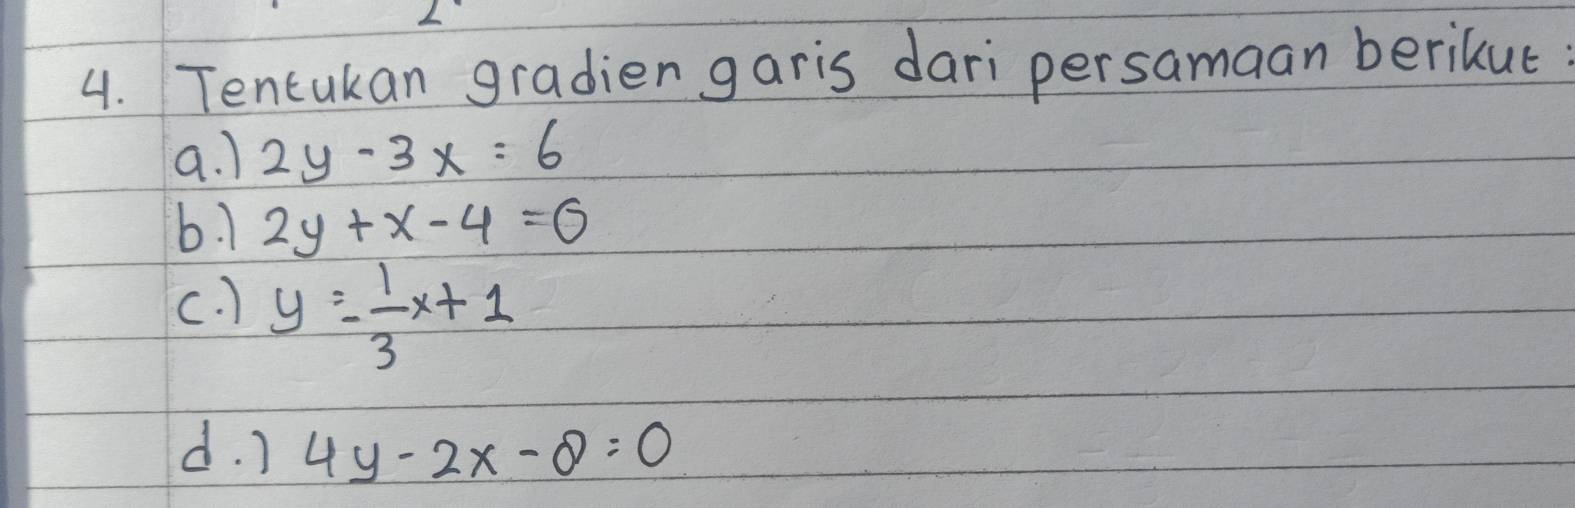 4. Tentukan gradien garis dari persamaan berikut :
a.) 2y - 3x = 6
b.) 2y + x - 4 = 0
c.) y = 1/3 x + 1
d.) 4y - 2x - 8 = 0